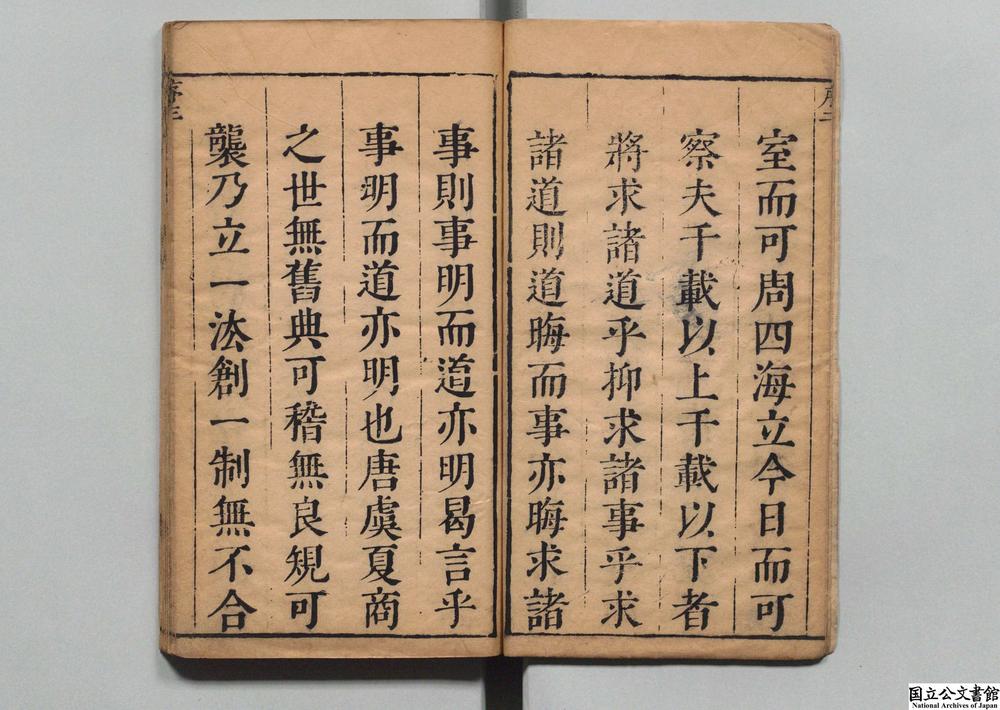 序二
室而可周四海立今日而可
察夫千載以上千載以下者
將求諸道乎抑求諸事乎求
諸道則道晦而事亦晦求諸
事則事明而道亦明曷言乎
事明而道亦明也唐虞夏商
之世無舊典可稽無良規可
襲乃立一法創一制無不合
序三
国立公文書館
National Archives of Japan